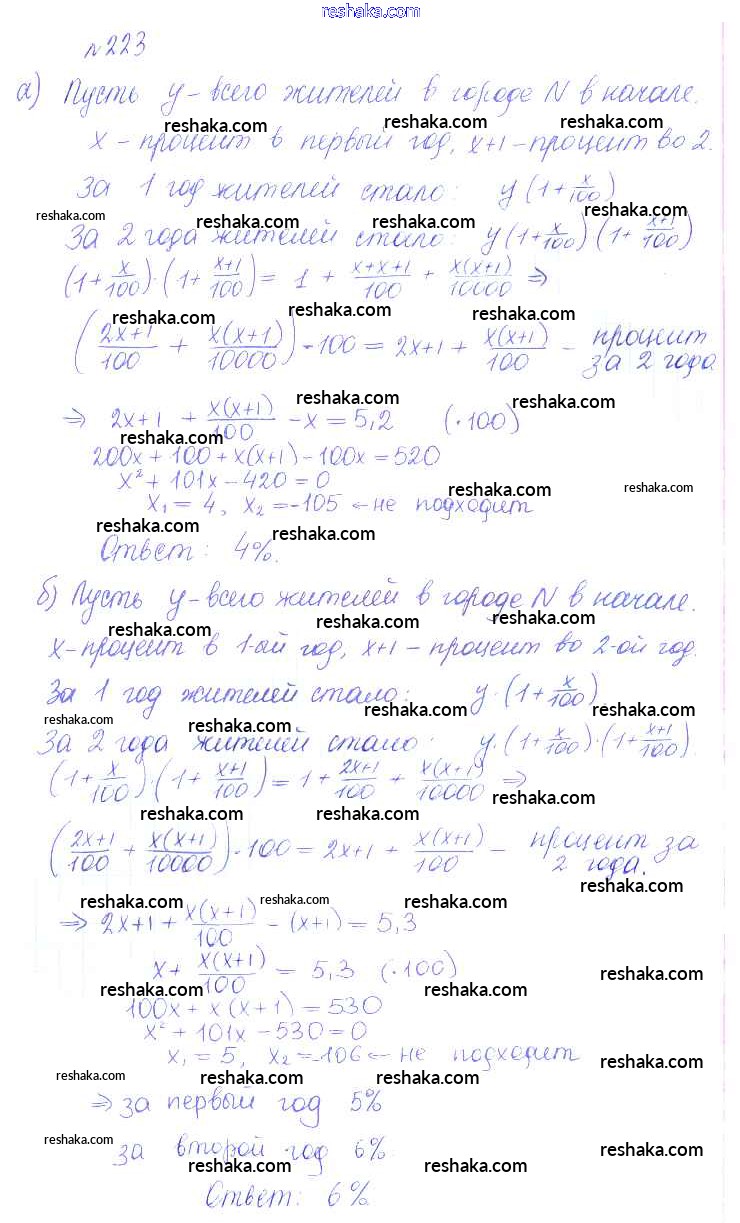 www.reshaka.com
№223
а) Пусть y - всего жителей в городе N в начале.
reshaka.com reshaka.com reshaka.com
x - процент в первый год, x+1 - процент во 2.
За 1 год жителей стало: y(1+x/100)
reshaka.com reshaka.com reshaka.com reshaka.com
За 2 года жителей стало: y(1+x/100)(1+(x+1)/100)
(1+x/100)·(1+(x+1)/100) = 1 + (x+x+1)/100 + x(x+1)/10000 ⇒
reshaka.com reshaka.com reshaka.com
((2x+1)/100 + x(x+1)/10000)·100 = 2x+1 + x(x+1)/100 - процент за 2 года
reshaka.com reshaka.com
⇒ 2x+1 + x(x+1)/100 - x = 5,2 (·100)
reshaka.com reshaka.com reshaka.com
200x + 100 + x(x+1) - 100x = 520
x² + 101x - 420 = 0
reshaka.com reshaka.com
x₁ = 4, x₂ = -105 ← не подходит
reshaka.com reshaka.com
Ответ: 4%.
б) Пусть y - всего жителей в городе N в начале.
reshaka.com reshaka.com reshaka.com
x - процент в 1-ый год, x+1 - процент во 2-ой год.
За 1 год жителей стало: y·(1+x/100)
reshaka.com reshaka.com reshaka.com reshaka.com
За 2 года жителей стало: y·(1+x/100)·(1+(x+1)/100).
(1+x/100)·(1+(x+1)/100) = 1 + (2x+1)/100 + x(x+1)/10000 ⇒
reshaka.com reshaka.com reshaka.com
((2x+1)/100 + x(x+1)/10000)·100 = 2x+1 + x(x+1)/100 - процент за 2 года.
reshaka.com
reshaka.com reshaka.com reshaka.com reshaka.com
⇒ 2x+1 + x(x+1)/100 - (x+1) = 5,3
x + x(x+1)/100 = 5,3 (·100)
reshaka.com reshaka.com reshaka.com
100x + x(x+1) = 530
x² + 101x - 530 = 0
x₁ = 5, x₂ = -106 ← не подходит
reshaka.com
reshaka.com reshaka.com reshaka.com
⇒ за первый год 5%
reshaka.com
за второй год 6%.
reshaka.com reshaka.com reshaka.com
Ответ: 6%